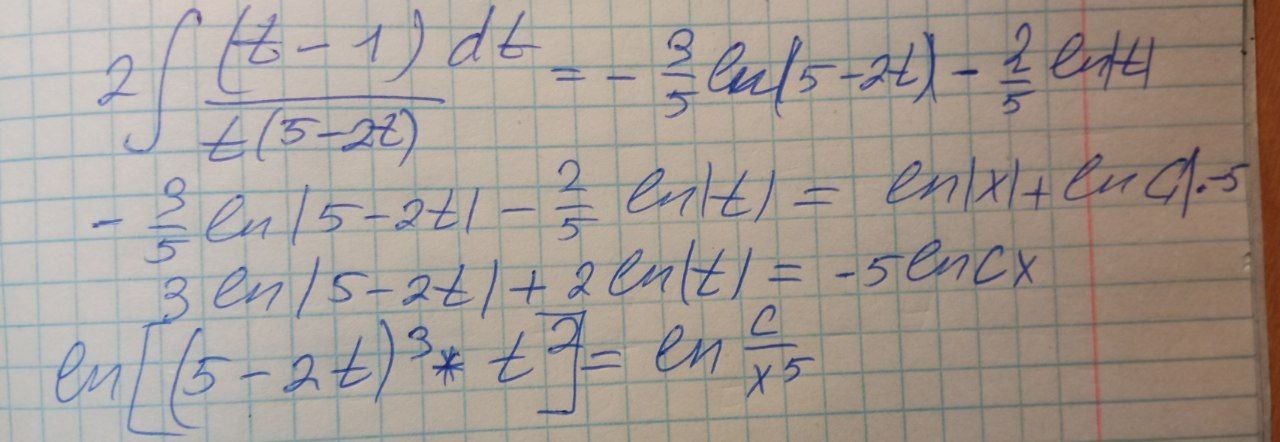 2∫ (t-1) dt / t(5-2t) = - 3/5 ln|5-2t| - 2/5 ln|t|
- 3/5 ln|5-2t| - 2/5 ln|t| = ln|x| + ln C |·-5
3 ln|5-2t| + 2 ln|t| = -5 ln Cx
ln[(5-2t)³ * t²] = ln C/x⁵